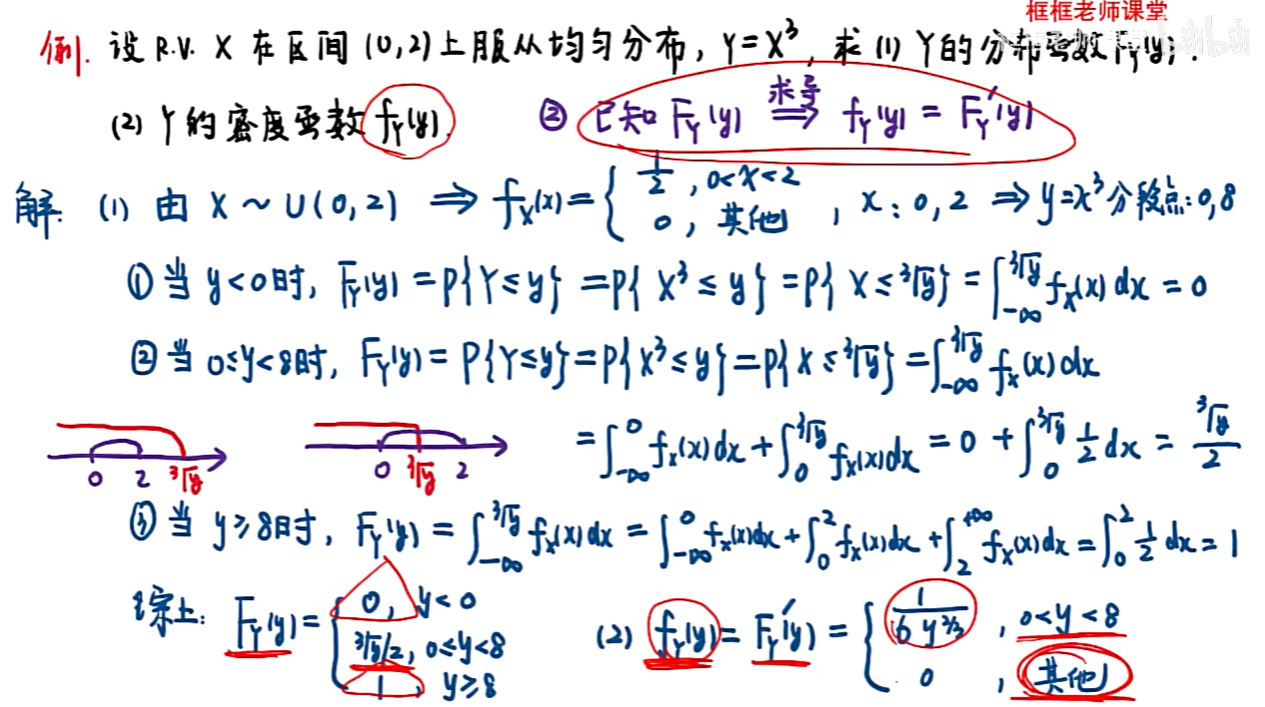 框框老师课堂
例. 设 R.V. X 在区间 (0,2) 上服从均匀分布, Y=X³, 求 (1) Y的分布函数 F_Y(y);
(2) Y的密度函数 f_Y(y). ② 已知 F_Y(y) 求导⟹ f_Y(y) = F_Y'(y)
解: (1) 由 X ~ U(0,2) ⟹ f_X(x) = { 1/2, 0<x<2
0, 其他 , x: 0, 2 ⟹ y=x³ 分段点: 0, 8
① 当 y<0时, F_Y(y) = P{Y≤y} = P{X³≤y} = P{X≤³√y} = ∫_{-∞}^{³√y} f_X(x)dx = 0
② 当 0≤y<8时, F_Y(y) = P{Y≤y} = P{X³≤y} = P{X≤³√y} = ∫_{-∞}^{³√y} f_X(x)dx
0 2 ³√y 0 ³√y 2 = ∫_{-∞}^{0} f_X(x)dx + ∫_{0}^{³√y} f_X(x)dx = 0 + ∫_{0}^{³√y} 1/2 dx = ³√y/2
③ 当 y≥8时, F_Y(y) = ∫_{-∞}^{³√y} f_X(x)dx = ∫_{-∞}^{0} f_X(x)dx + ∫_{0}^{2} f_X(x)dx + ∫_{2}^{+∞} f_X(x)dx = ∫_{0}^{2} 1/2 dx = 1
综上: F_Y(y) = { 0, y<0
³√y/2, 0≤y<8
1, y≥8
(2) f_Y(y) = F_Y'(y) = { 1/(6y^{2/3}), 0<y<8
0, 其他